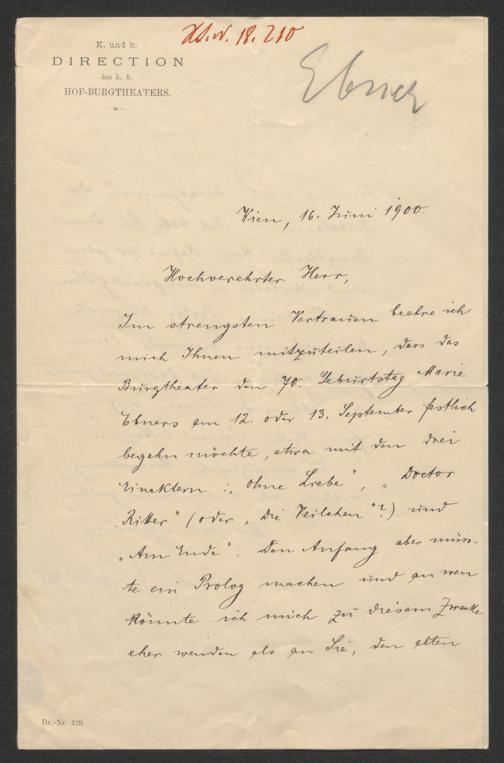 K. und k.
DIRECTION
des k. k.
HOF-BURGTHEATERS.
18.210
Ebner
Wien, 16. Juni 1900.
Hochverehrter Herr,
Im strengsten Vertrauen beehre ich
mich Ihnen mitzuteilen, dass das
Burgtheater den 70. Geburtstag Marie
Ebners am 12. oder 13. September festlich
begehn möchte, etwa mit den drei
Einaktern: „Ohne Liebe", „Doctor
Ritter" (oder „Die Veilchen"?) und
„Am Ende". Den Anfang aber müss-
te ein Prolog machen und an wen
könnte ich mich zu diesem Zwecke
eher wenden als an Sie, den alten
Dr.-Nr. 429.